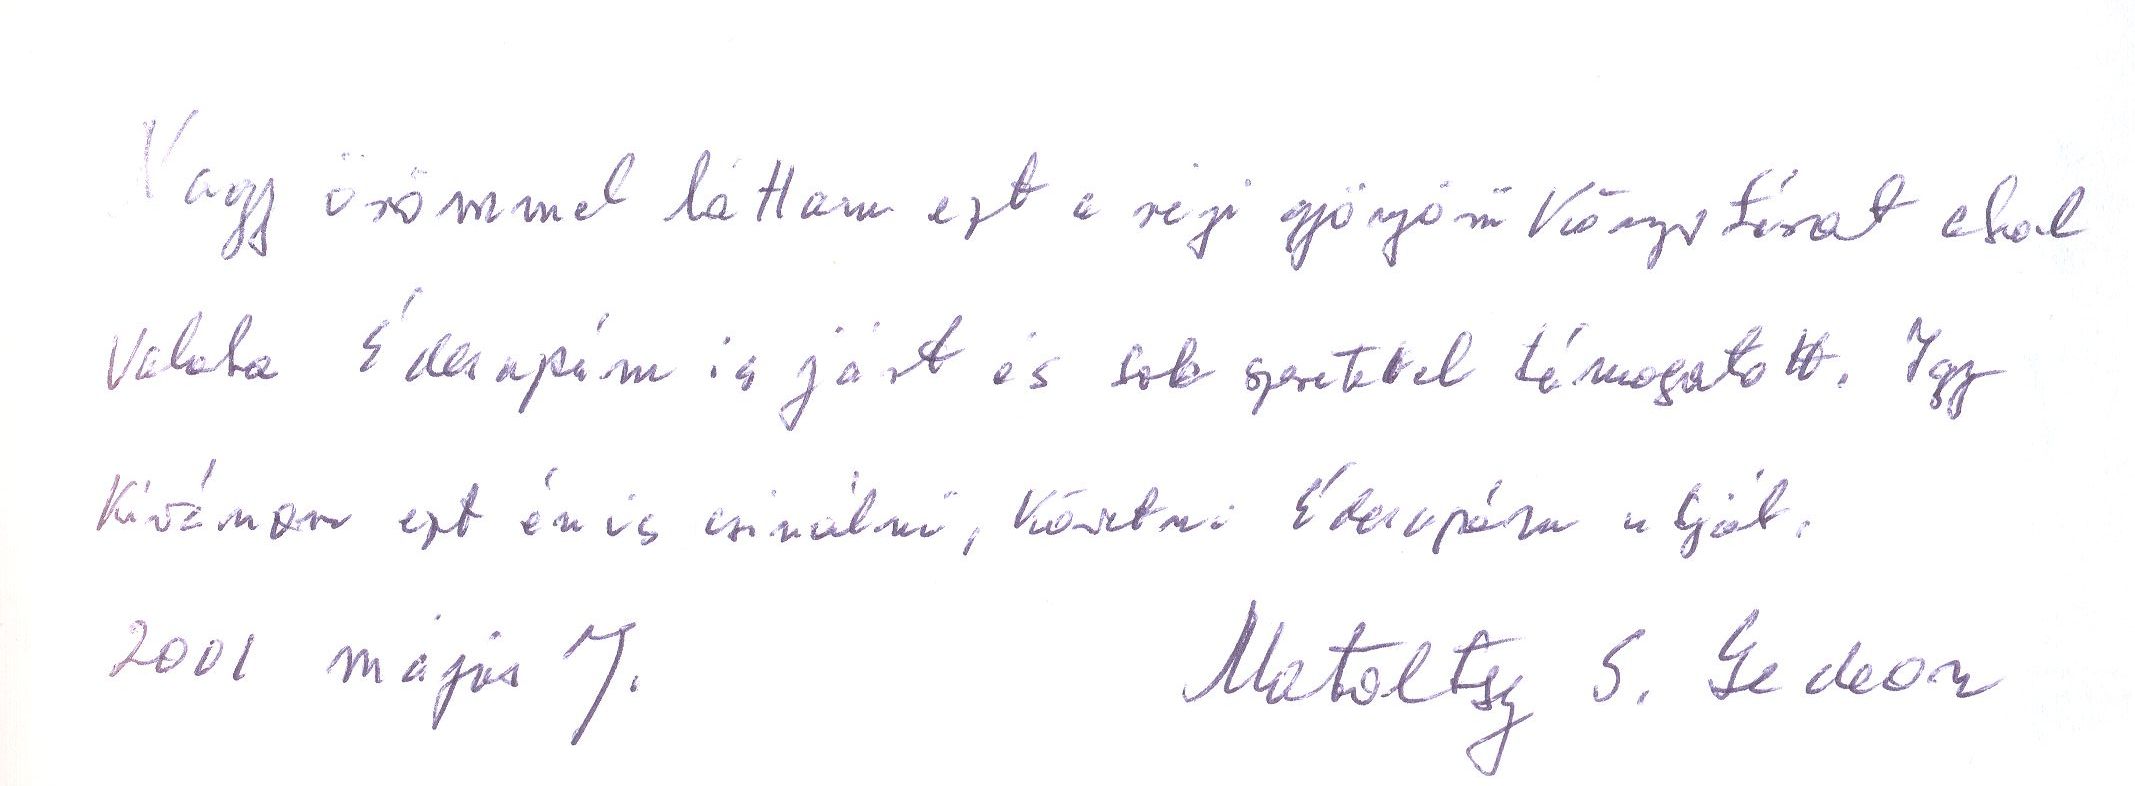 Nagy örömmel láttam ezt a régi gyönyörű Könyvtárat ahol
Valaha Édesapám is járt és sok szeretettel támogatott. Igy
Kívánom ezt én is csinálni, Követni Édesapám utját.
2001 május 7.
Matoltsy S. Gedeon